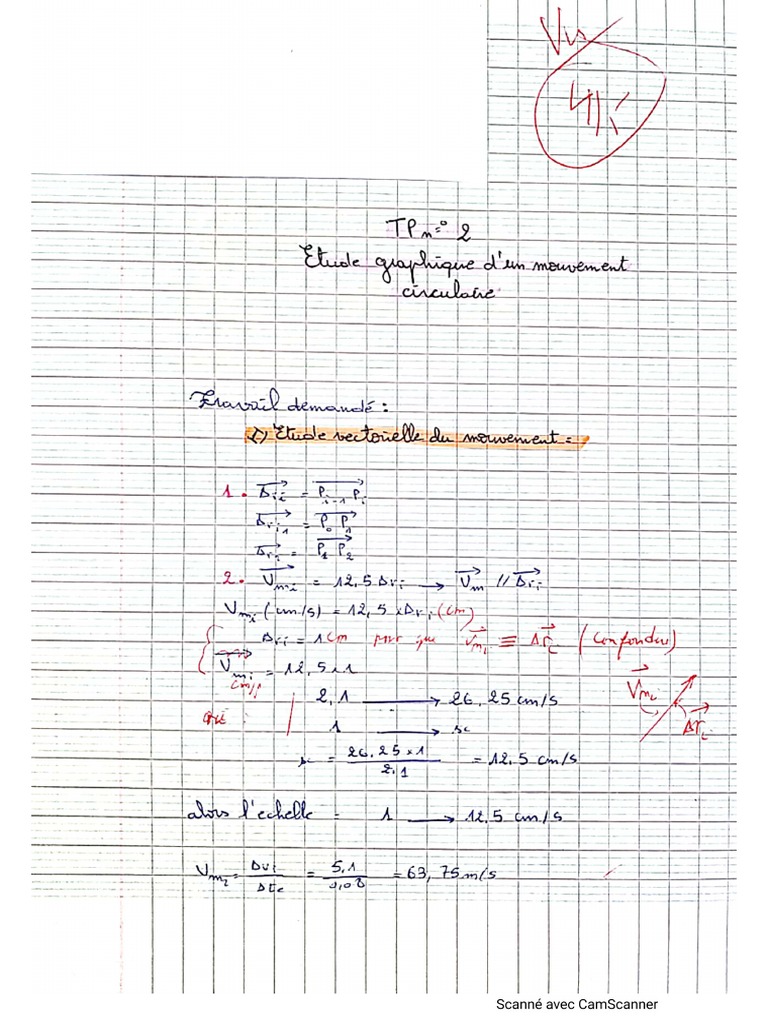 Vu
TP n=° 2
Etude graphique d'un mouvement
circulaire
Travail demandé :
I) Etude vectorielle du mouvement =
1. Δri = Pi-1 Pi
Δri1 = P0 P1
Δri = P1 P2
2. Vmi = 12,5 Δri → Vm // Δri
Vmi (cm/s) = 12,5 x Δri (cm)
Δri = 1 cm pour que Vmi ≡ Δri (confondus)
Vmi = 12,5 x 1
cm/s
Vmi
2,1 → 26,25 cm/s
où : 1 → x
Δri
x = 26,25 x 1 / 2,1 = 12,5 cm/s
alors l'echelle = 1 → 12,5 cm/s
Vm2 = Δri / Δtc = 5,1 / 0,08 = 63,75 m/s
Scanné avec CamScanner